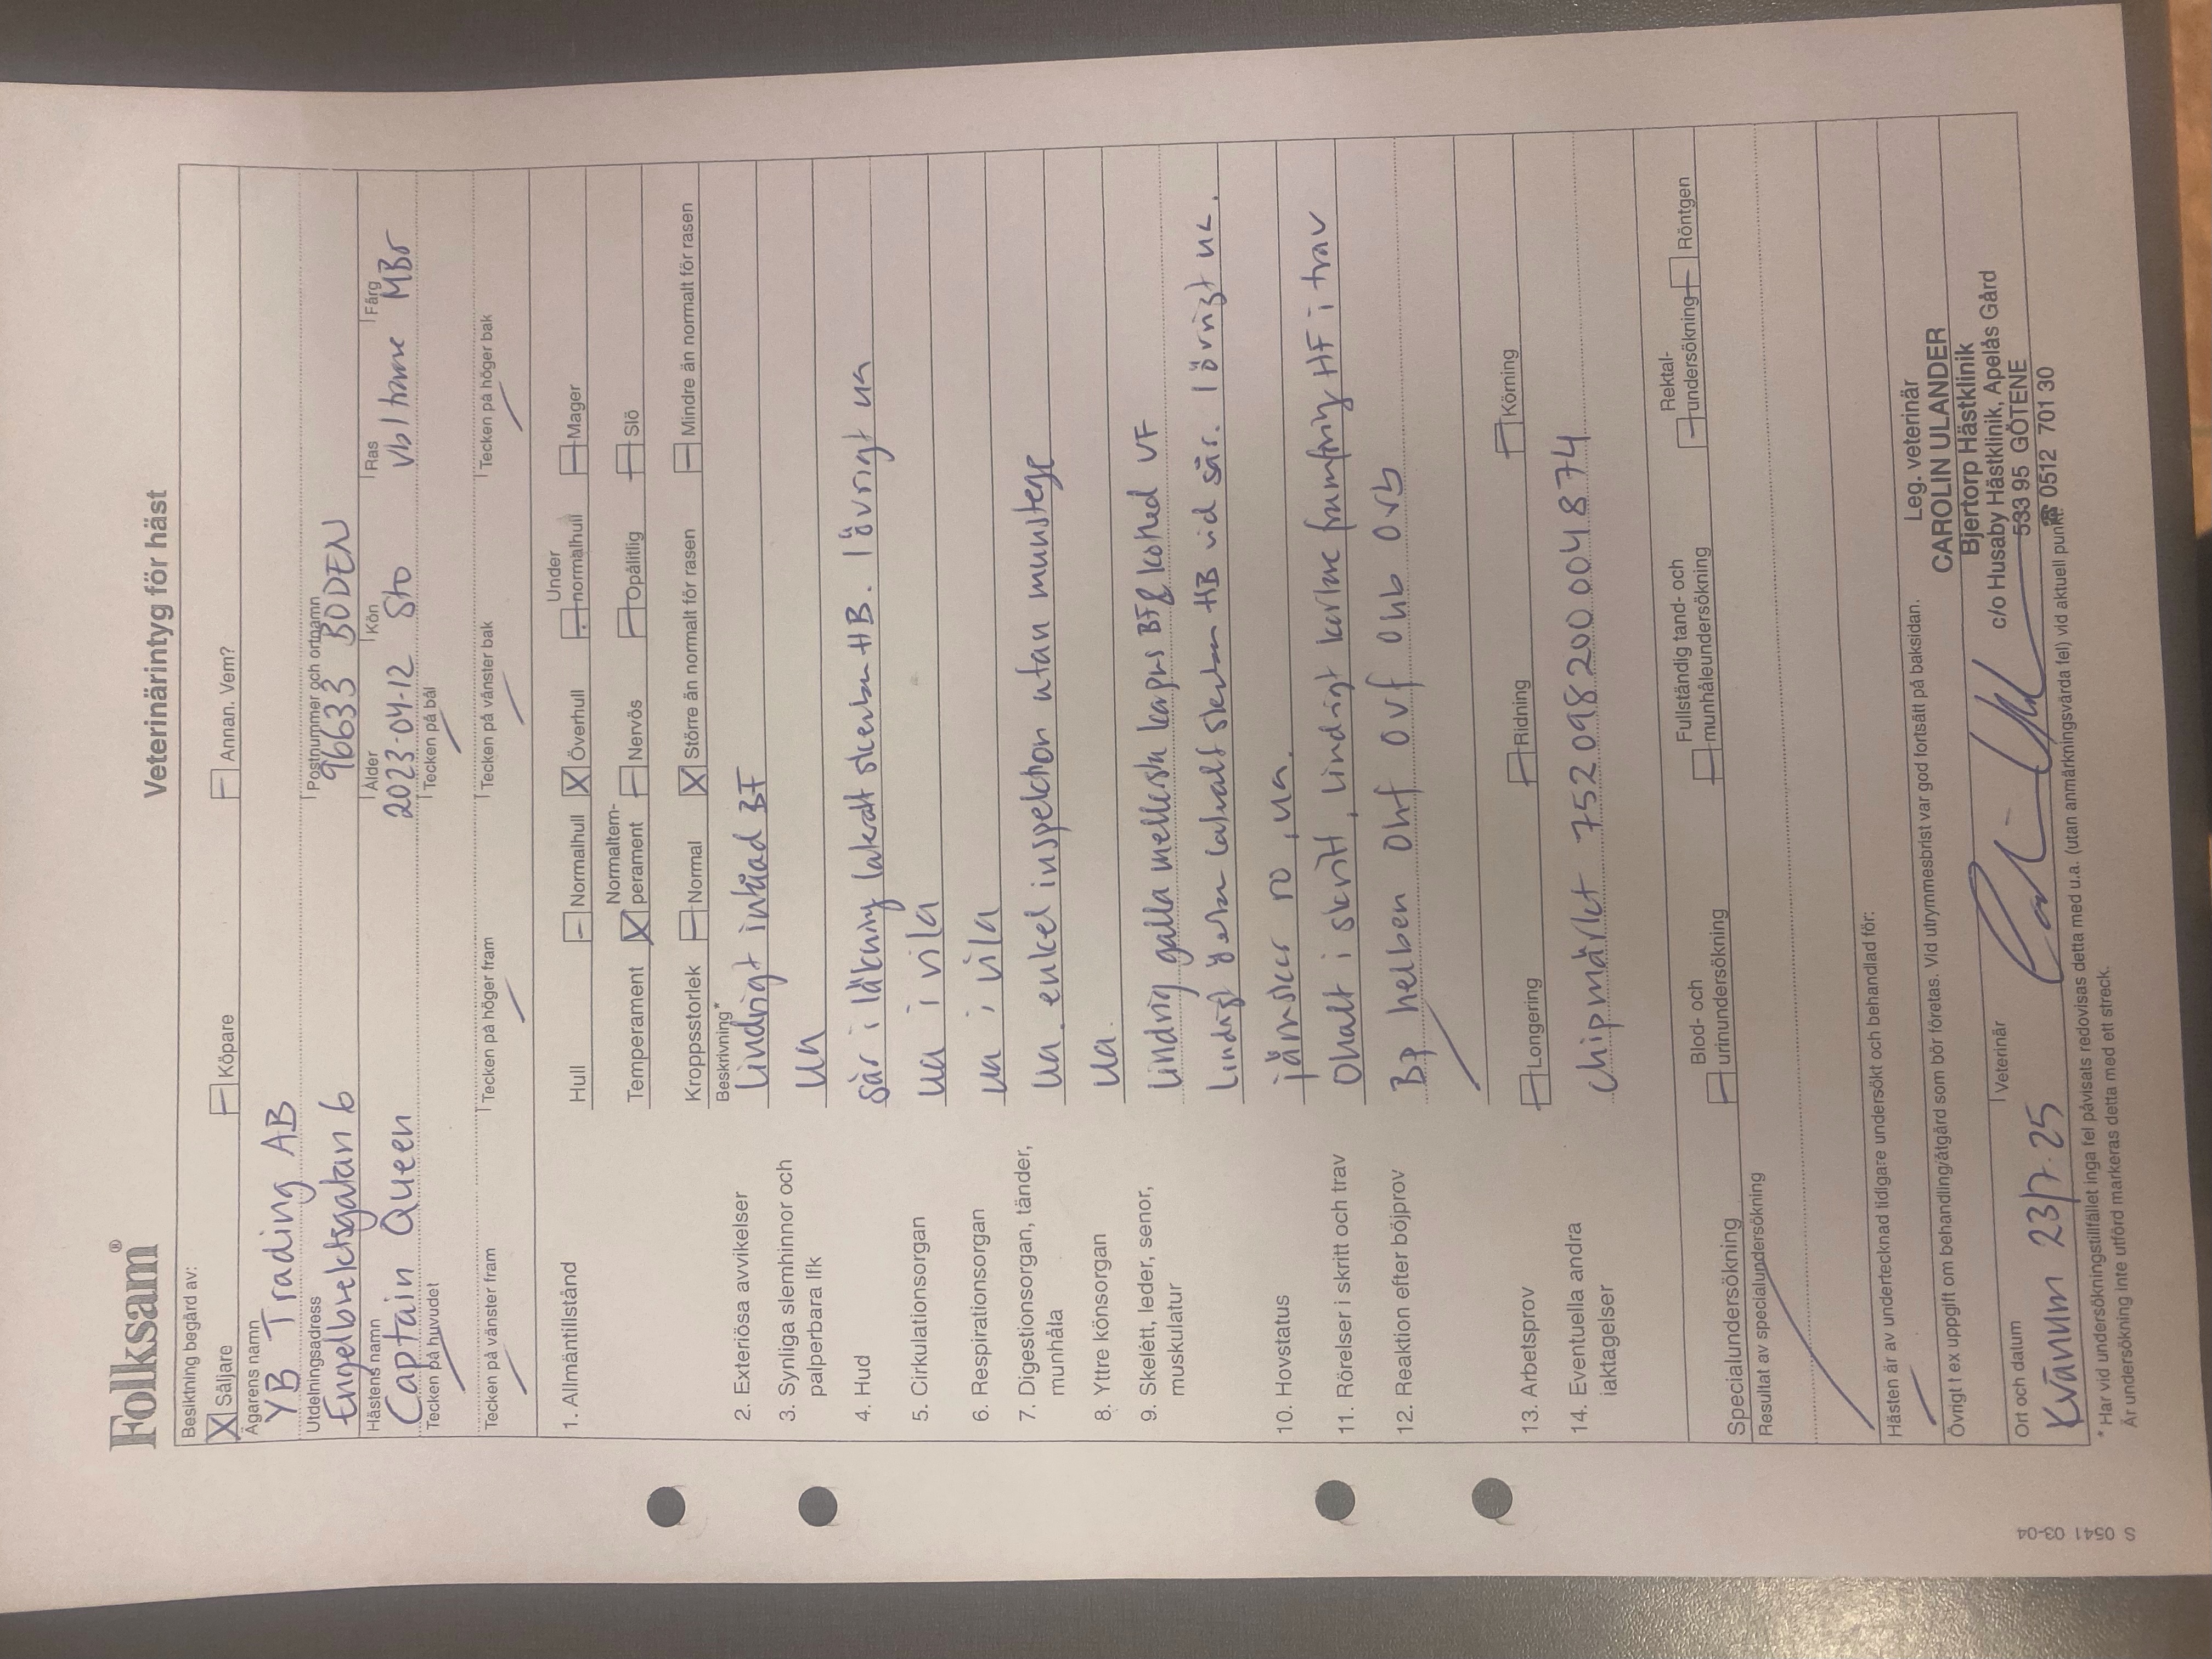 Folksam®
Veterinärintyg för häst
Besiktning begärd av:
X Säljare Köpare Annan. Vem?
Ägarens namn
YB Trading AB
Utdelningsadress Postnummer och ortnamn
Engelbrektsgatan 6 96633 BODEN
Hästens namn Ålder Kön Ras Färg
Captain Queen 2023-04-12 Sto Vbl trav MBr
Tecken på huvudet Tecken på bål
Tecken på vänster fram Tecken på höger fram Tecken på vänster bak Tecken på höger bak
1. Allmäntillstånd Hull Normalhull X Överhull Under normalhull Mager
Temperament X Normaltemperament Nervös Opålitlig Slö
Kroppsstorlek Normal X Större än normalt för rasen Mindre än normalt för rasen
Beskrivning*
2. Exteriösa avvikelser Lindrigt inknäad BF
3. Synliga slemhinnor och palperbara lfk ua
4. Hud Sår i läkning lateralt skenben HB. I övrigt ua
5. Cirkulationsorgan ua i vila
6. Respirationsorgan ua i vila
7. Digestionsorgan, tänder, munhåla ua. enkel inspektion utan munstege
8. Yttre könsorgan ua.
9. Skelett, leder, senor, muskulatur Lindrig galla mellersta karpus BF & kotled VF
Lindrigt lateralt skenben HB vid sår. I övrigt ua.
10. Hovstatus järnskor ro, ua.
11. Rörelser i skritt och trav Ohalt i skritt, lindrigt kortare framföring HF i trav
12. Reaktion efter böjprov Bp helben Ohf Ovf Ohb Ovb
13. Arbetsprov Longering Ridning Körning
14. Eventuella andra iakttagelser Chipmärkt 752098200048 74
Specialundersökning Blod- och urinundersökning Fullständig tand- och munhåleundersökning Rektal-undersökning Röntgen
Resultat av specialundersökning
Hästen är av undertecknad tidigare undersökt och behandlad för:
Övrigt t ex uppgift om behandling/åtgärd som bör företas. Vid utrymmesbrist var god fortsätt på baksidan.
Leg. veterinär
CAROLIN ULANDER
Bjertorp Hästklinik
c/o Husaby Hästklinik, Apelås Gård
533 95 GÖTENE
☎ 0512 701 30
Ort och datum Veterinär
Kvänum 23/7-25
* Har vid undersökningstillfället inga fel påvisats redovisas detta med u.a. (utan anmärkningsvärda fel) vid aktuell punkt.
Är undersökning inte utförd markeras detta med ett streck.
S 0541 03-04